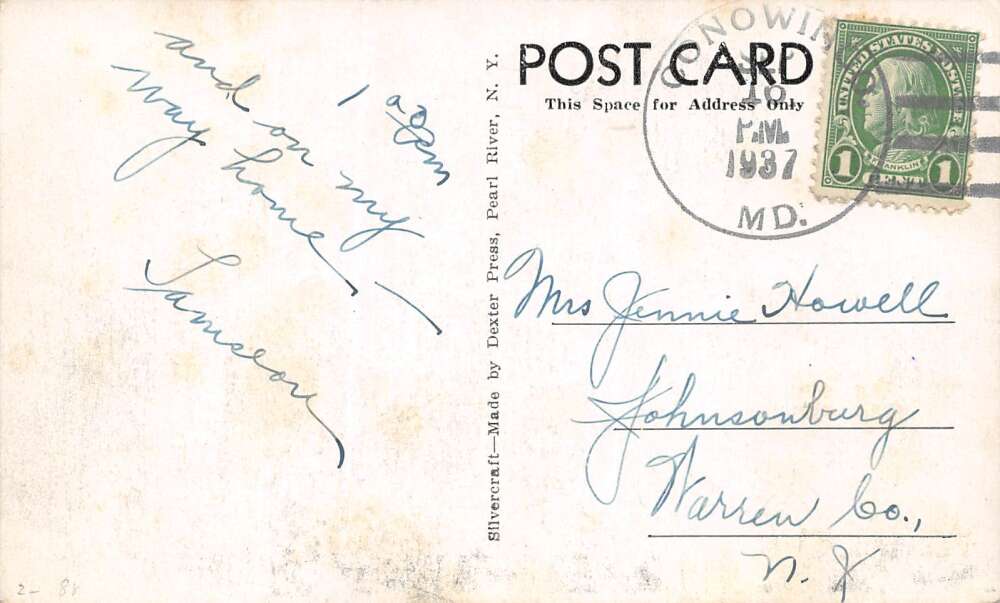 1 20 Pm
and on my
way home –
Lamson
Silvercraft—Made by Dexter Press, Pearl River, N. Y.
POST CARD
This Space for Address Only
CONOWINGO
18
P.M.
1937
MD.
UNITED STATES POSTAGE
FRANKLIN
1 CENT 1
Mrs Jennie Howell
Johnsonburg
Warren Co.,
N. J